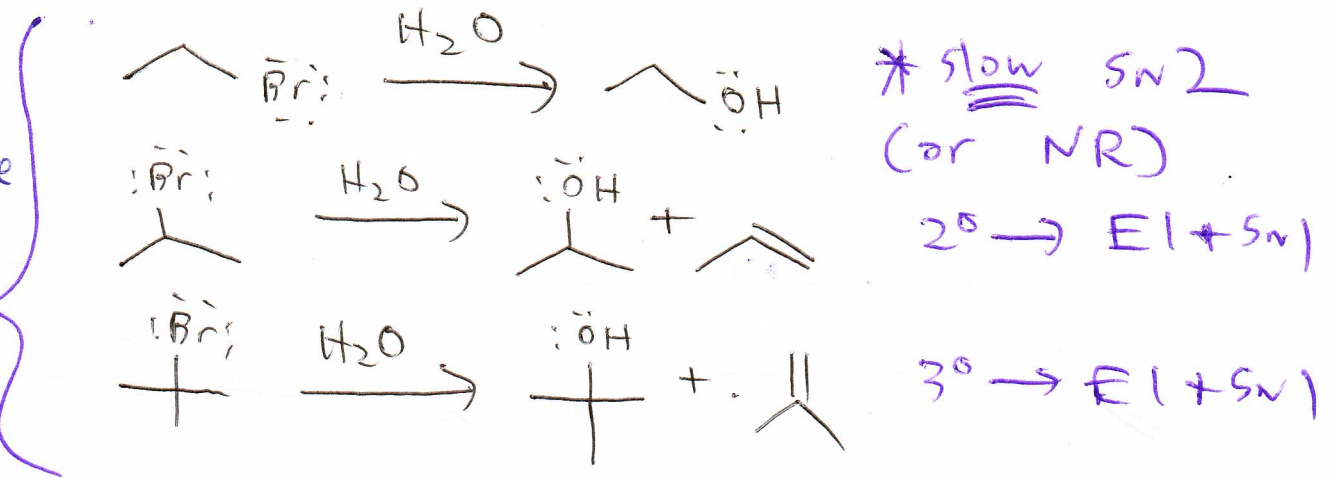 H2O
Br: → ÖH * slow SN2
(or NR)
e
:Br: H2O :ÖH + 2° → E1 + SN1
:Br: H2O :ÖH + 3° → E1 + SN1